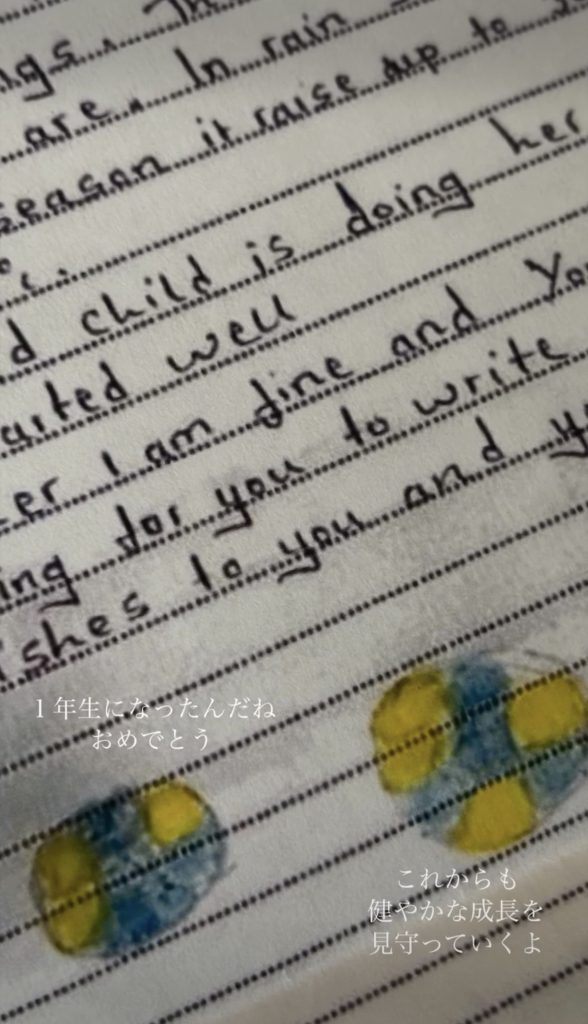 ngs. Th
are. In rain
season it raise up to 3
c.
d child is doing her
arted well
er I am fine and you
ing for you to write
ishes to you and y
1年生になったんだね
おめでとう
これからも
健やかな成長を
見守っていくよ